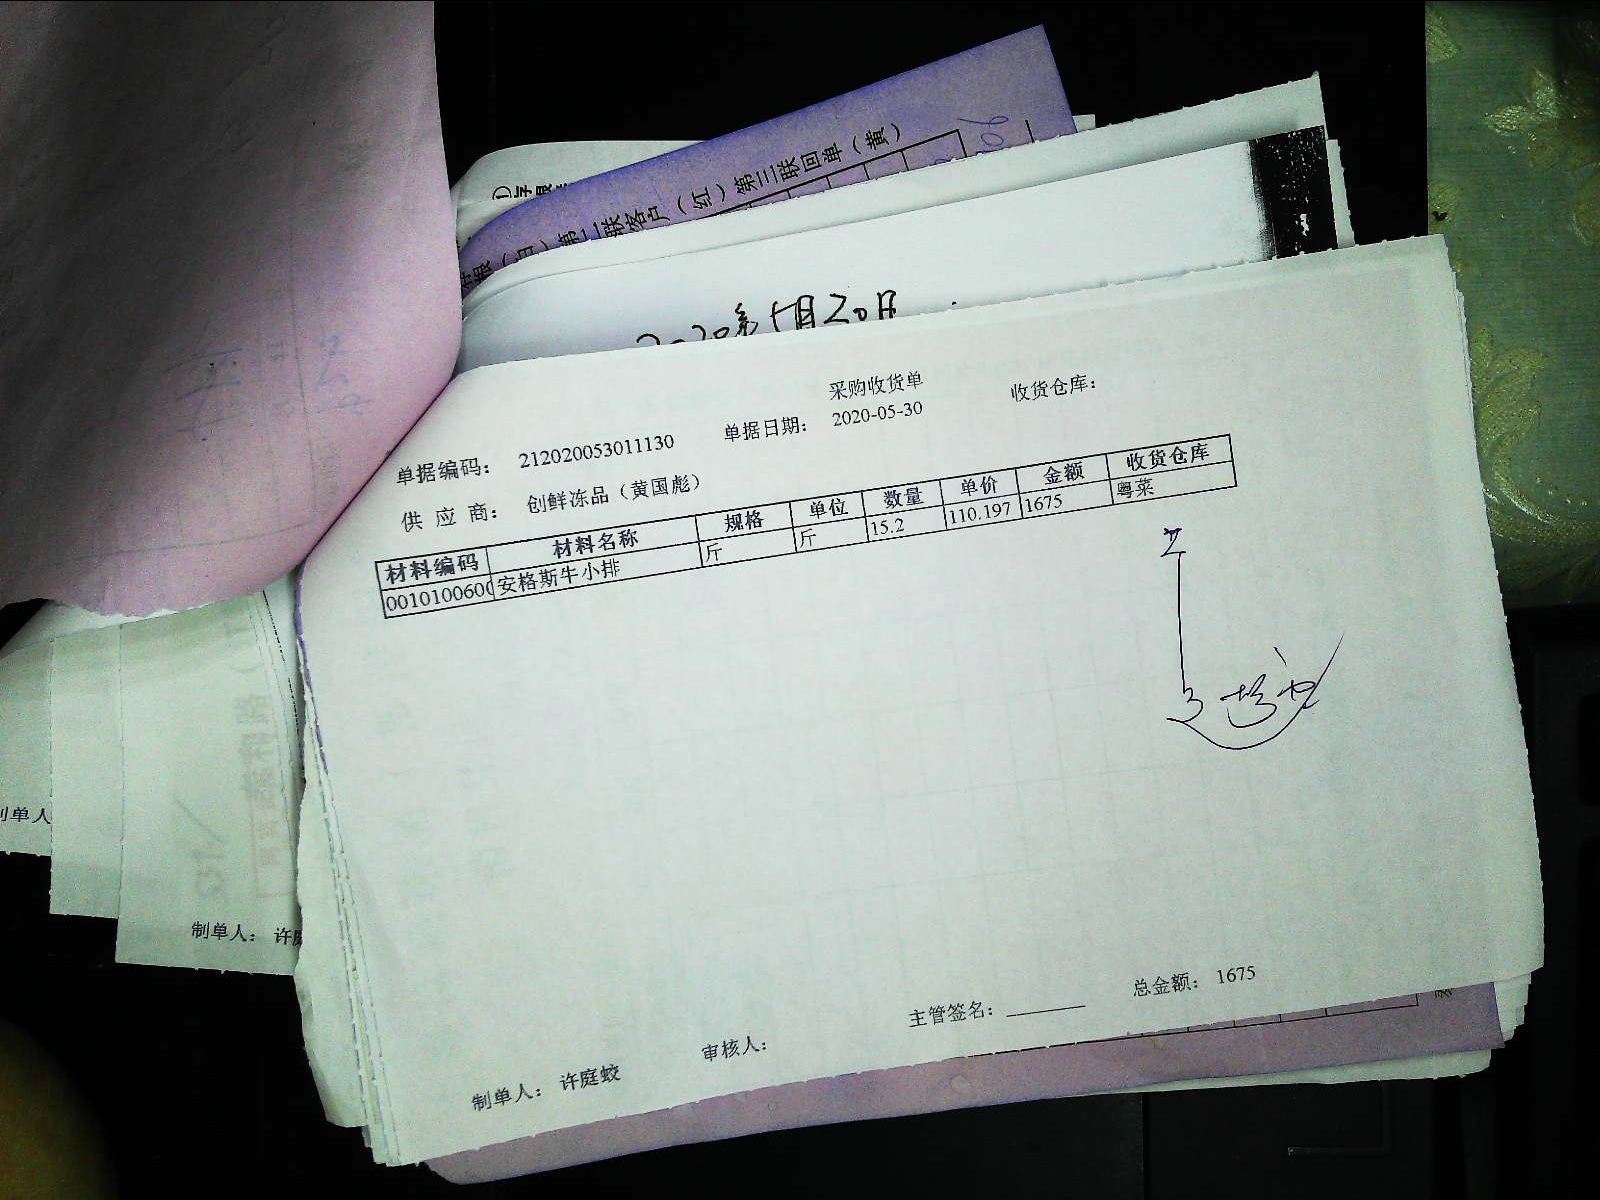 存根（白）第二联客户（红）第三联回单（黄）
2020年5月20日
采购收货单
单据编码： 212020053011130 单据日期： 2020-05-30 收货仓库：
供 应 商： 创鲜冻品（黄国彪）
材料编码 材料名称 规格 单位 数量 单价 金额 收货仓库
0010100600 安格斯牛小排 斤 斤 15.2 110.197 1675 粤菜
主管签名： 总金额： 1675
制单人： 许庭蛟 审核人：
制单人
制单人： 许庭